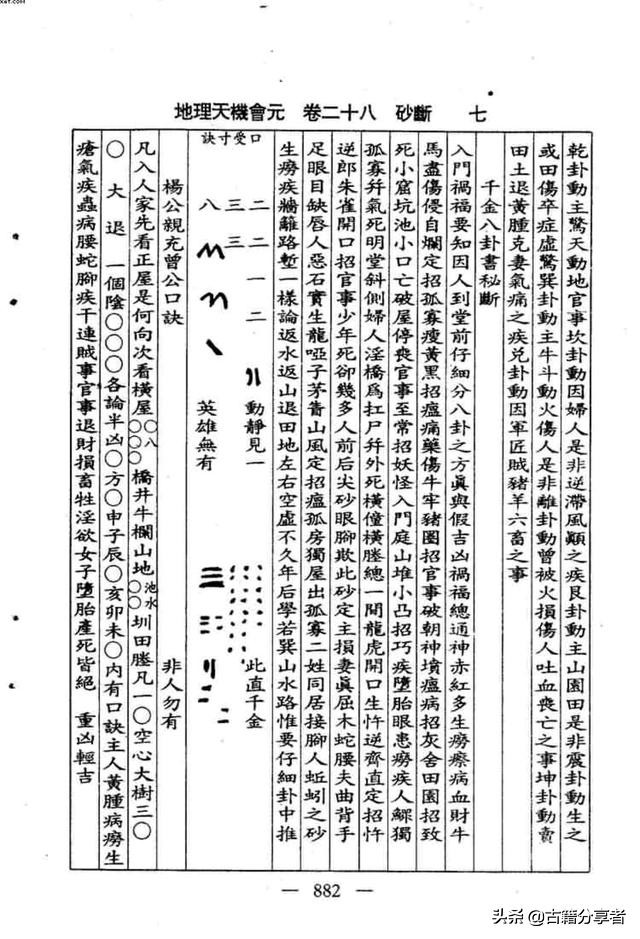 xet.com
地理天機會元　卷二十八　砂斷　七
乾卦動主驚天動地官事坎卦動因婦人是非逆滯風顛之疾艮卦動主山園田是非震卦動生之
或田傷卒症虛驚巽卦動主牛斗動火傷人是非離卦動曾被火損傷人吐血喪亡之事坤卦動賣
田土退黃腫克妻氣痛之疾兌卦動因軍匠賊豬羊六畜之事
千金八卦書秘斷
入門禍福要知因人到堂前仔細分八卦之方眞與假吉凶禍福總通神赤紅多生癆瘵病血財牛
馬盡傷侵自爛定招孤寡瘦黃黑招瘟痛藥傷牛牢豬圈招官事破朝神墳瘟病招灰舍田園招致
死小窟坑池小口亡破屋停喪官事至常招妖怪入門庭山堆小凸招巧疾墮胎眼患癆疾人鰥獨
孤寡幷氣死明堂斜側婦人淫橋爲扛尸幷外死橫僮橫塍總一閗龍虎開口生忤逆齊直定招忤
逆郎朱雀開口招官事少年死卻幾多人前后尖砂眼腳欺此砂定主損妻眞屈木蛇腰夫曲背手
足眼目缺唇人惡石實生龍啞子茅薔山風定招瘟孤房獨屋出孤寡二姓同居接腳人蚯蚓之砂
生癆疾牆籬路塹一樣論返水返山退田地左右空虛不久年后學若巽山水路惟要仔細卦中推
口受寸訣
二二一二　動靜見一　此直千金
三三
八　英雄無有　非人勿有
楊公親充曾公口訣
凡入人家先看正屋是何向次看橫屋〇八〇〇〇橋井牛欄山地池水〇〇圳田塍凡一〇空心大樹三〇
〇大退一個陰〇〇〇各論半凶〇方〇申子辰〇亥卯未〇內有口訣主人黃腫病癆生
瘡氣疾蟲病腰蛇腳疾干連賊事官事退財損畜牲淫欲女子墮胎產死皆絕　重凶輕吉
— 882 —
头条 @古籍分享者